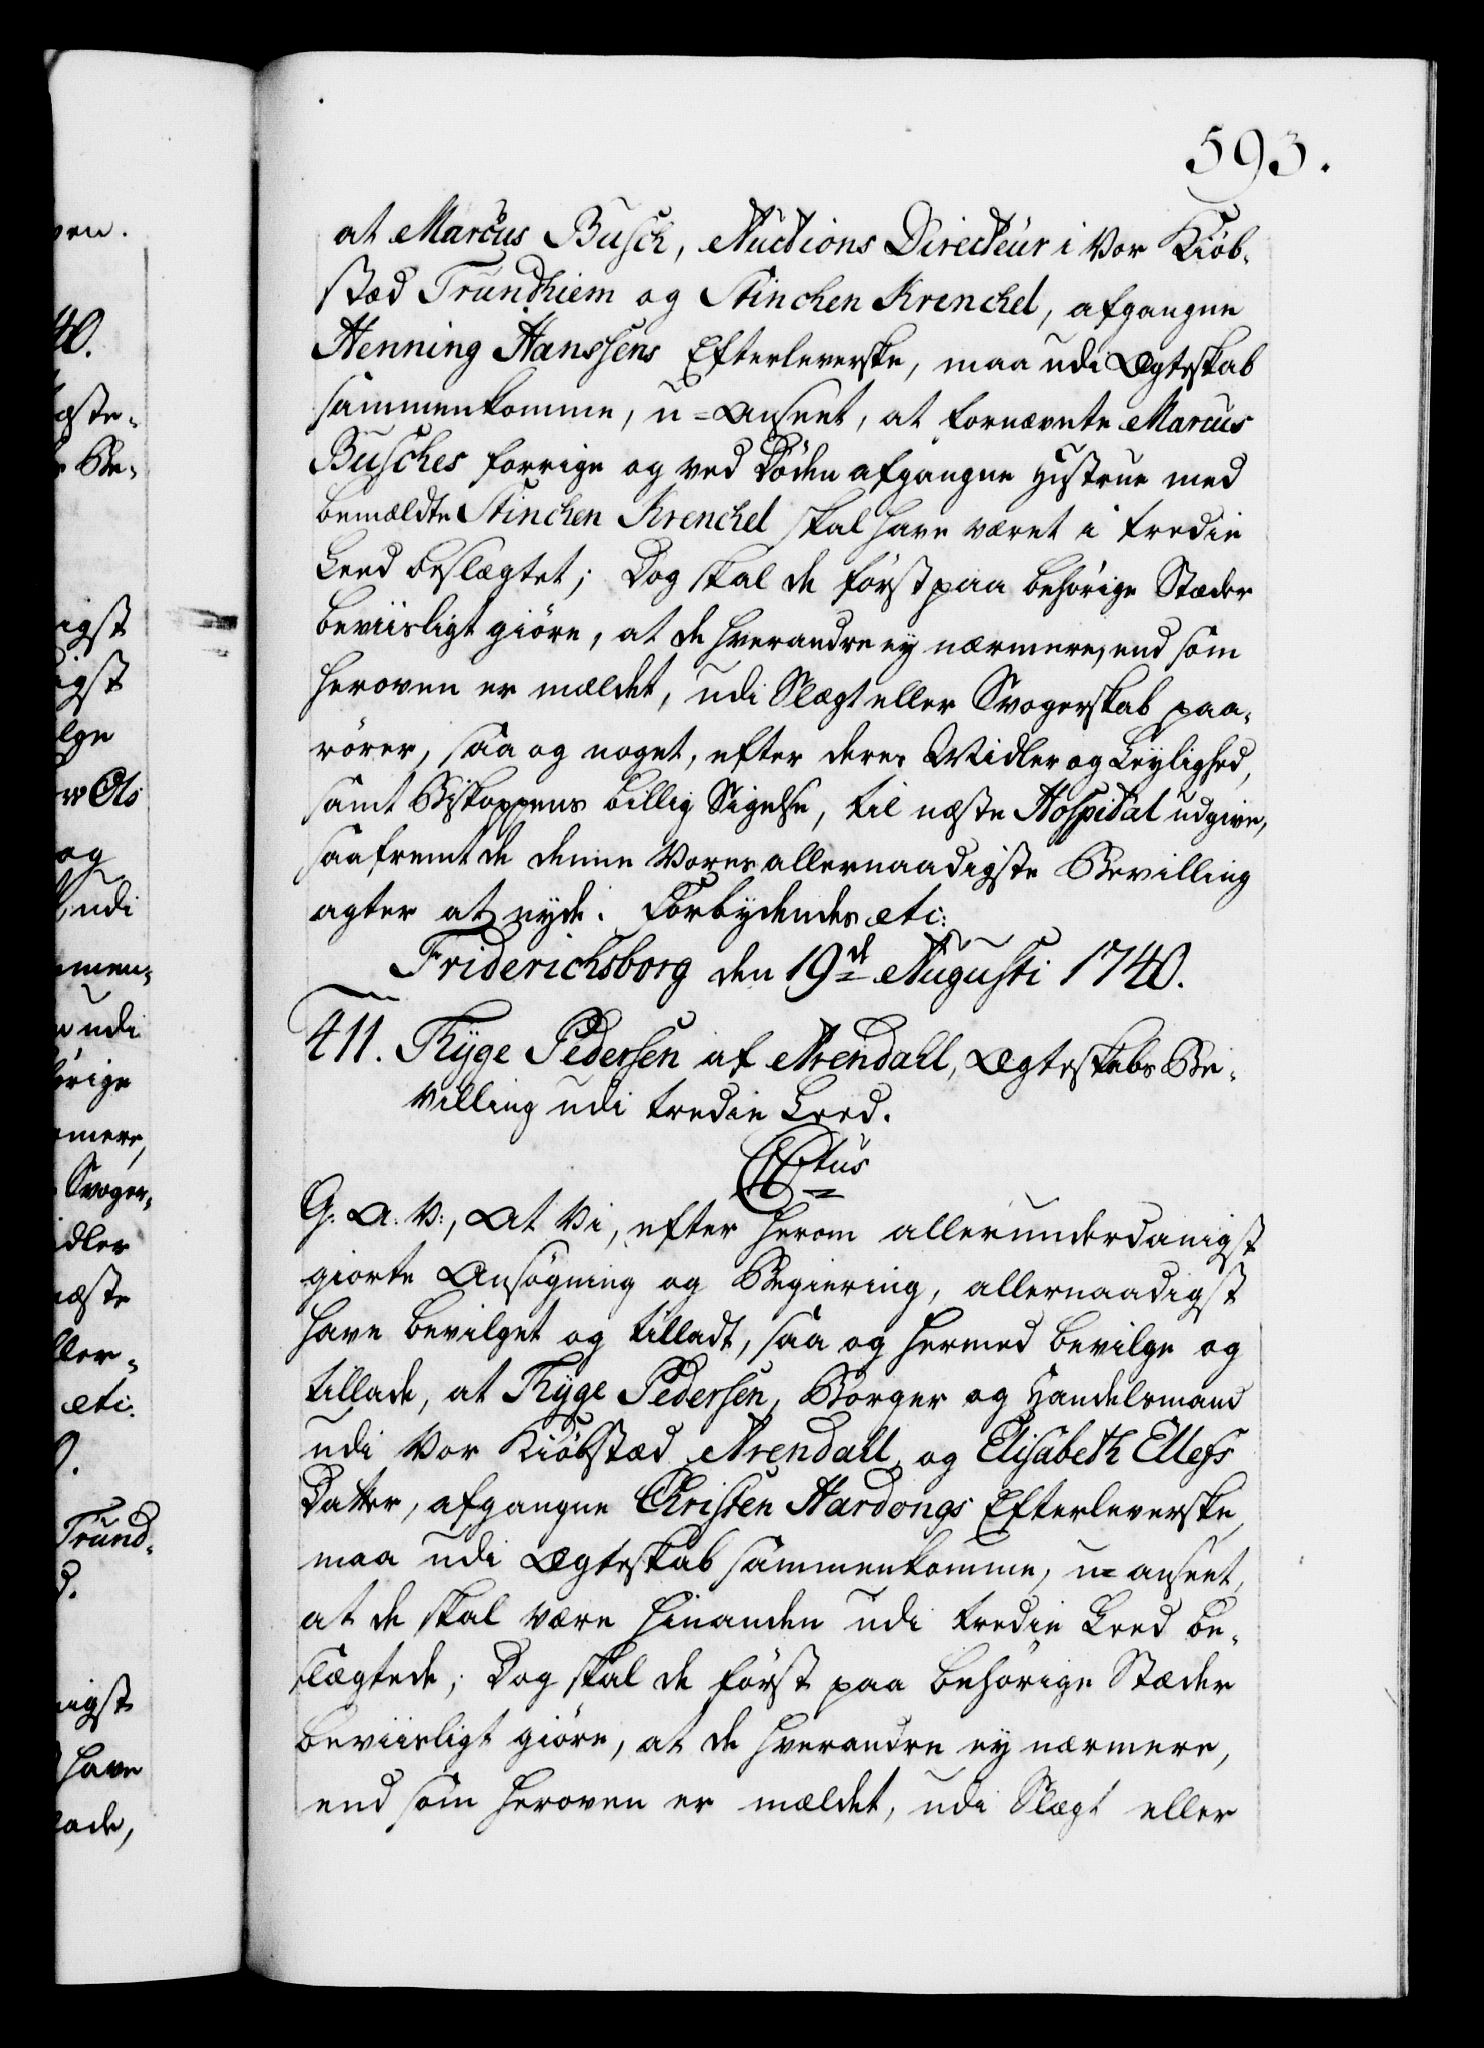 593.
at Marcus Busch, Auctions Directeur i Vor Kiöb-
stæd Trundhiem og Stinchen Krenchel, afgangne
Henning Hanssens Efterleverske, maa udi Ægteskab
sammenkomme, u=anseet, at fornævnte Marcus
Busches forrige og ved Döden afgangne Hustrue med
bemældte Stinchen Krenchel skal have været i tredie
Leed beslægtet; Dog skal de först paa behörige Stæder
beviisligt giöre, at de hverandre ey nærmere, end som
heroven er mældet, udi Slægt eller Svogerskab paa-
rörer, saa og noget, efter deres Midler og Leylighed,
samt Biskoppens billig Sigelse, til næste Hospital udgive,
saafremt de denne Vores allernaadigste Bevilling
agter at nyde. Forbydendes etc:
Friderichsborg den 19de Augusti 1740.
411. Tyge Pedersen af Arendall, Ægteskabs Be-
villing udi tredie Leed.
CCtus
G. A. V:, At Vi, efter herom allerunderdanigst
giorte Ansögning og Begiering, allernaadigst
have bevilget og tilladt, saa og hermed bevilge og
tillade, at Tyge Pedersen, Borger og Handelsmand
udi Vor Kiöbstæd Arendall, og Elisabeth Ellefs
Datter, afgangne Christen Hardongs Efterleverske,
maa udi Ægteskab sammenkomme, u=anseet,
at de skal være hinanden udi tredie Leed be-
slægtede; Dog skal de först paa behörige Stæder
beviisligt giöre, at de hverandre ey nærmere,
end som heroven er mældet, udi Slægt eller